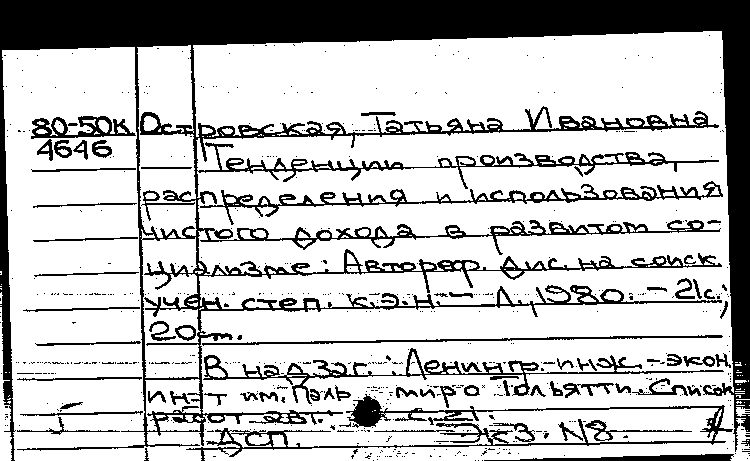 80-50к Островская, Татьяна Ивановна
4646
Тенденции производства,
распределения и использования
чистого дохода в развитом со-
циализме: Автореф. дис. на соиск.
учен. степ. к.э.н. - Л., 1980. - 21с.;
20 т.
В надзаг.: Ленингр. инж.-экон.
ин-т им. Паль миро Тольятти. Список
работ авт.: с. 21.
ДСП. Экз. N8.